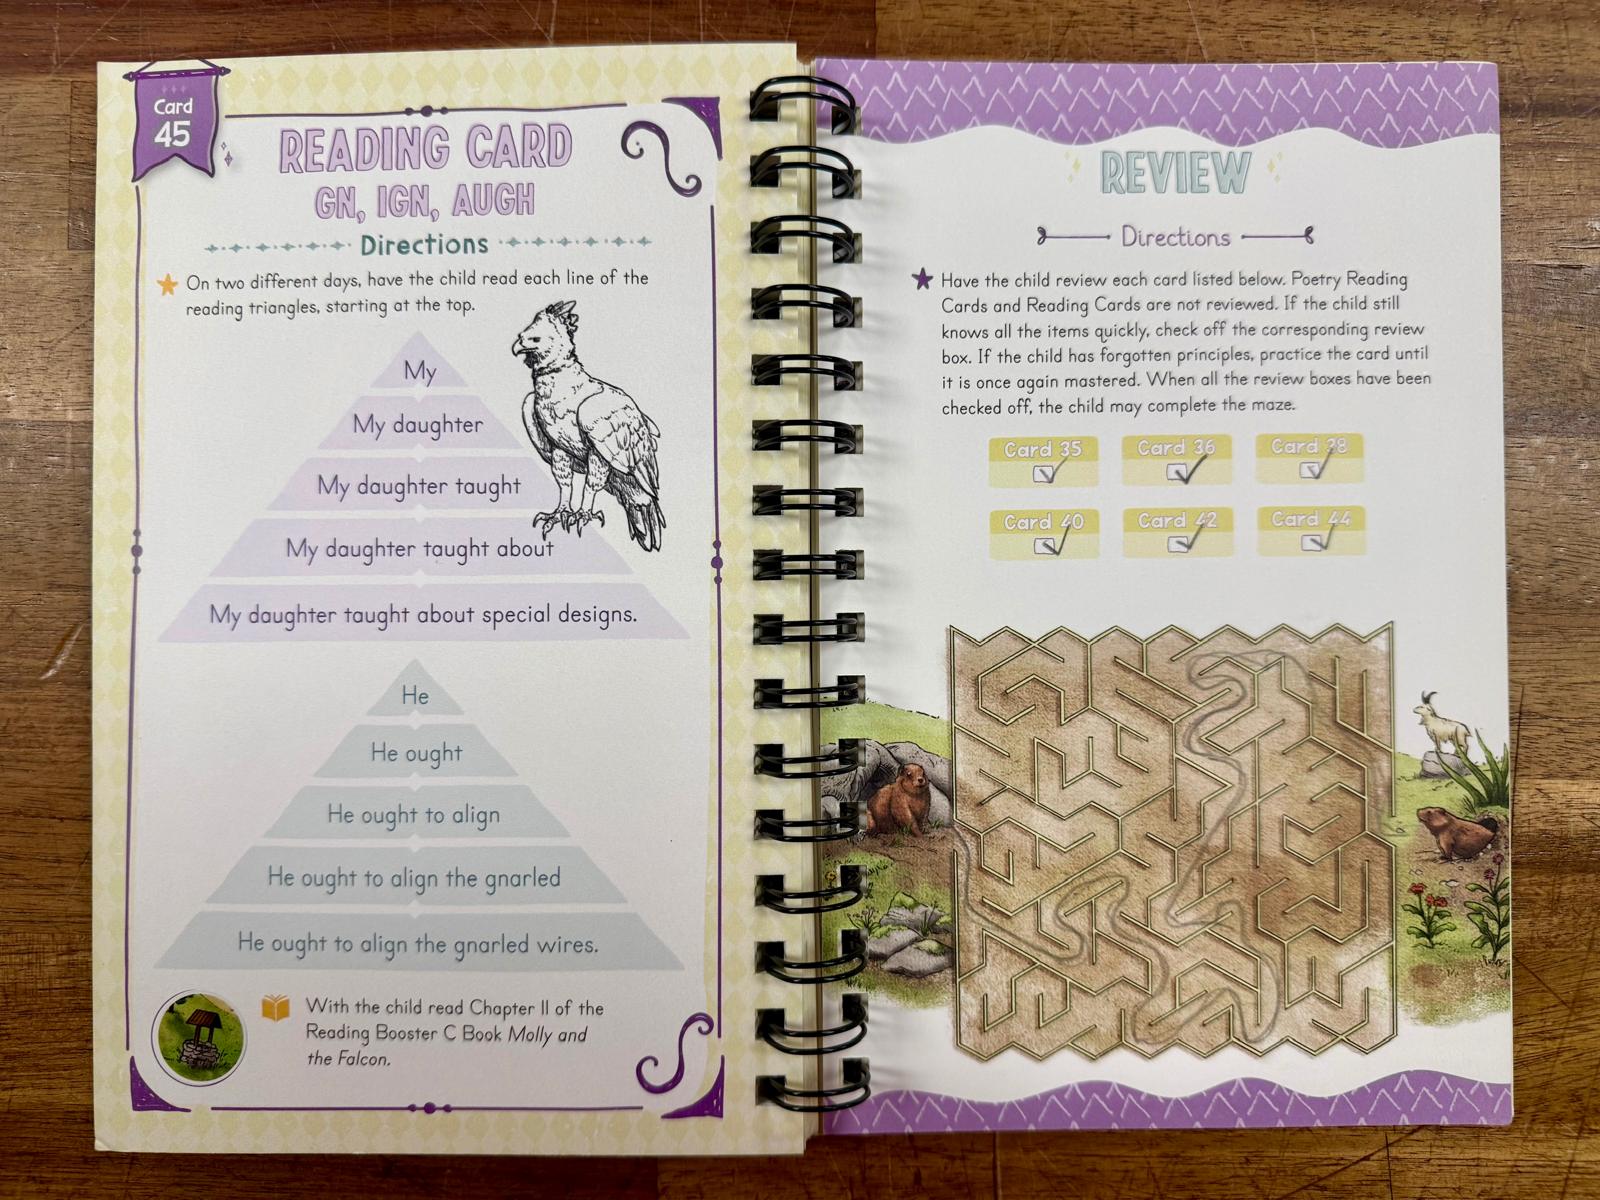 Card
45
READING CARD
GN, IGN, AUGH
Directions
On two different days, have the child read each line of the
reading triangles, starting at the top.
My
My daughter
My daughter taught
My daughter taught about
My daughter taught about special designs.
He
He ought
He ought to align
He ought to align the gnarled
He ought to align the gnarled wires.
With the child read Chapter 11 of the
Reading Booster C Book Molly and
the Falcon.
REVIEW
Directions
Have the child review each card listed below. Poetry Reading
Cards and Reading Cards are not reviewed. If the child still
knows all the items quickly, check off the corresponding review
box. If the child has forgotten principles, practice the card until
it is once again mastered. When all the review boxes have been
checked off, the child may complete the maze.
Card 35
Card 36
Card 38
Card 40
Card 42
Card 44